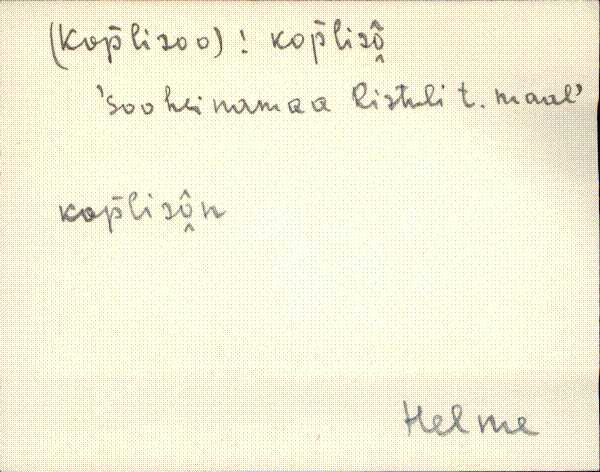 (Kop̄lisoo) : kop̄lisô̭
'soo heinamaa Listuli t. maal'
kop̄lisô̭n
Helme